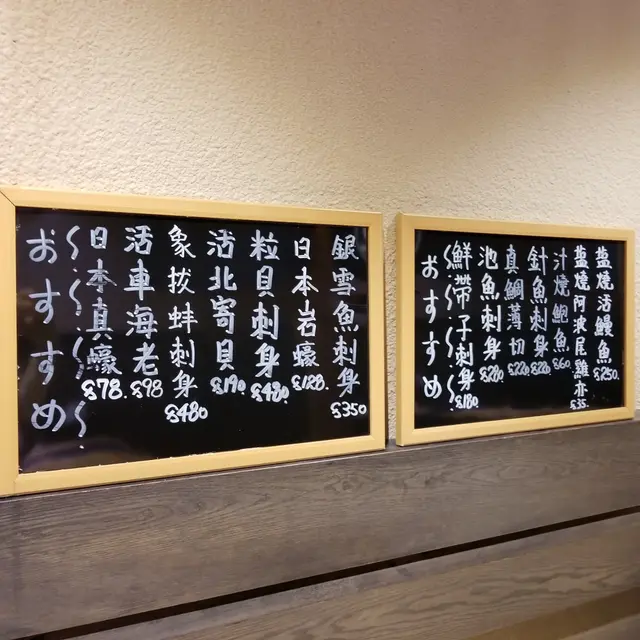 おすすめ
日本真蠔 $78.
活車海老 $98
象拔蚌刺身 $480
活北寄貝 $190.
粒貝刺身 $480.
日本岩蠔 $128.
銀雪魚刺身 $350
おすすめ
鮮帶子刺身 $180.
池魚刺身 $280.
真鯛薄切 $220.
針魚刺身 $220.
汁燒鮑魚 $60.
鹽燒阿波尾雞亦 $35.
鹽燒活鰻魚 $250.